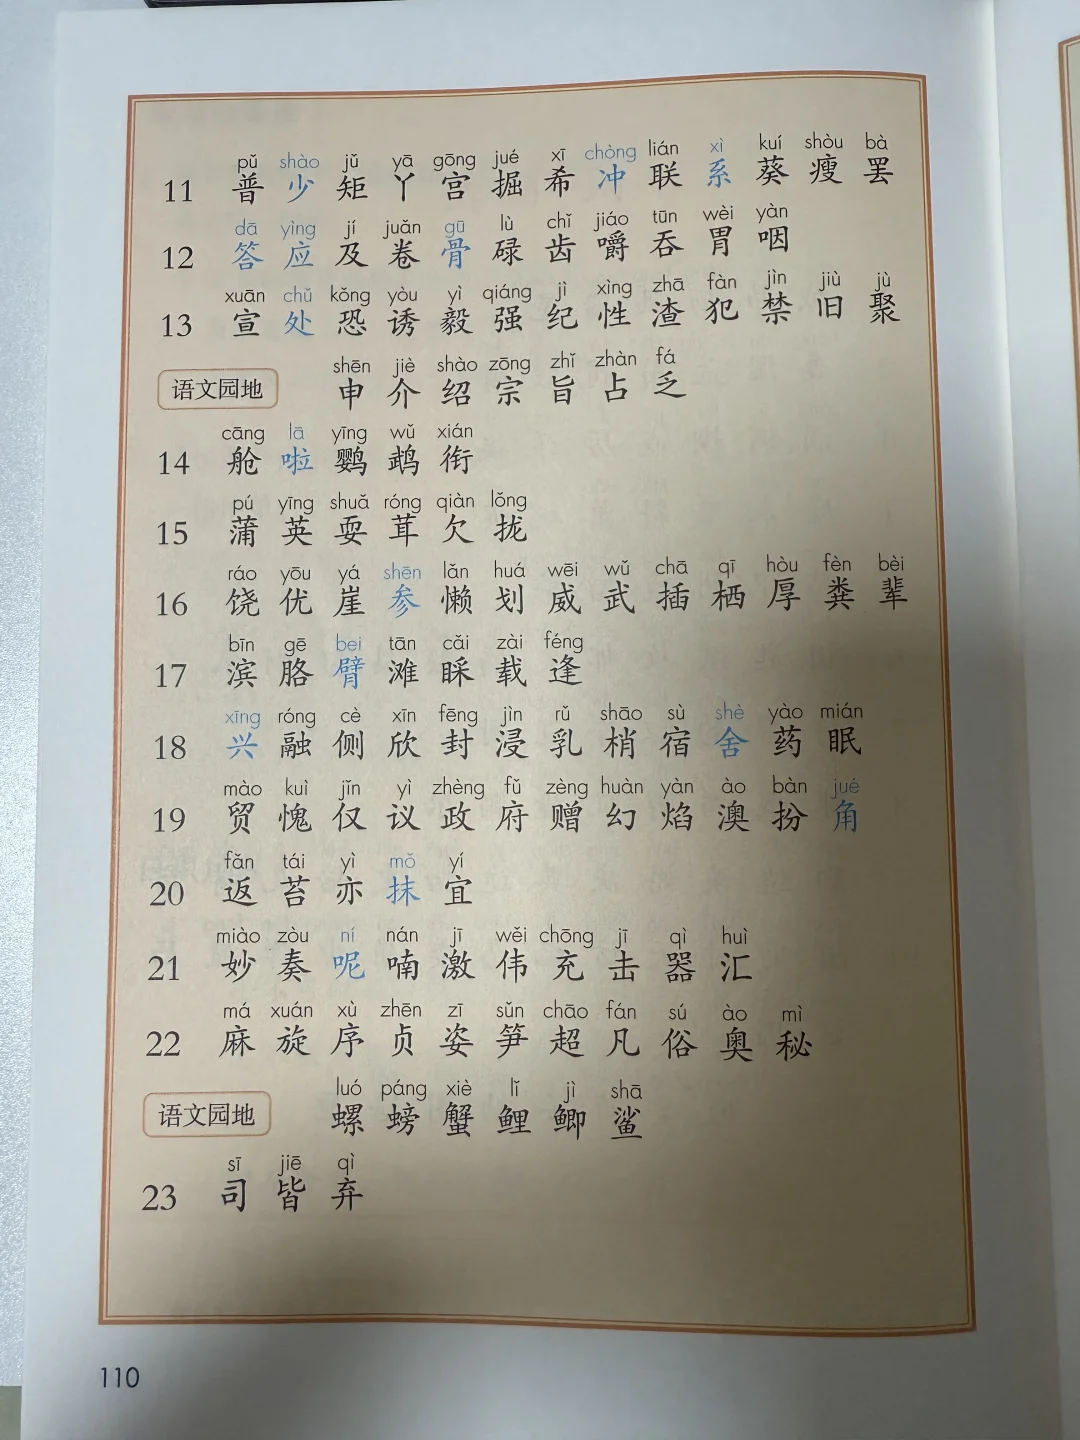 pǔ shào jǔ yā gōng jué xī chòng lián xì kuí shòu bà
11 普 少 矩 丫 宫 掘 希 冲 联 系 葵 瘦 罢
dā yìng jí juǎn gū lù chǐ jiáo tūn wèi yàn
12 答 应 及 卷 骨 碌 齿 嚼 吞 胃 咽
xuān chǔ kǒng yòu yì qiáng jì xìng zhā fàn jìn jiù jù
13 宣 处 恐 诱 毅 强 纪 性 渣 犯 禁 旧 聚
shēn jiè shào zōng zhǐ zhàn fá
语文园地 申 介 绍 宗 旨 占 乏
cāng lā yīng wǔ xián
14 舱 啦 鹦 鹉 衔
pú yīng shuǎ róng qiàn lǒng
15 蒲 英 耍 茸 欠 拢
ráo yōu yá shēn lǎn huá wēi wǔ chā qī hòu fèn bèi
16 饶 优 崖 参 懒 划 威 武 插 栖 厚 粪 辈
bīn gē bei tān cǎi zài féng
17 滨 胳 臂 滩 睬 载 逢
xīng róng cè xīn fēng jìn rǔ shāo sù shè yào mián
18 兴 融 侧 欣 封 浸 乳 梢 宿 舍 药 眠
mào kuì jǐn yì zhèng fǔ zèng huàn yàn ào bàn jué
19 贸 愧 仅 议 政 府 赠 幻 焰 澳 扮 角
fǎn tái yì mǒ yí
20 返 苔 亦 抹 宜
miào zòu ní nán jī wěi chōng jī qì huì
21 妙 奏 呢 喃 激 伟 充 击 器 汇
má xuán xù zhēn zī sǔn chāo fán sú ào mì
22 麻 旋 序 贞 姿 笋 超 凡 俗 奥 秘
luó páng xiè lǐ jì shā
语文园地 螺 螃 蟹 鲤 鲫 鲨
sī jiē qì
23 司 皆 弃
110